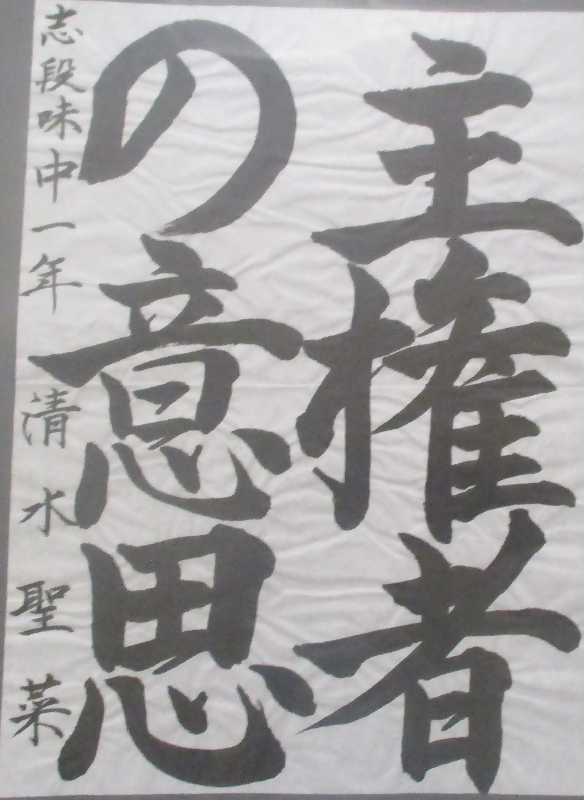 主権者
の意思
志段味中一年 清水聖菜